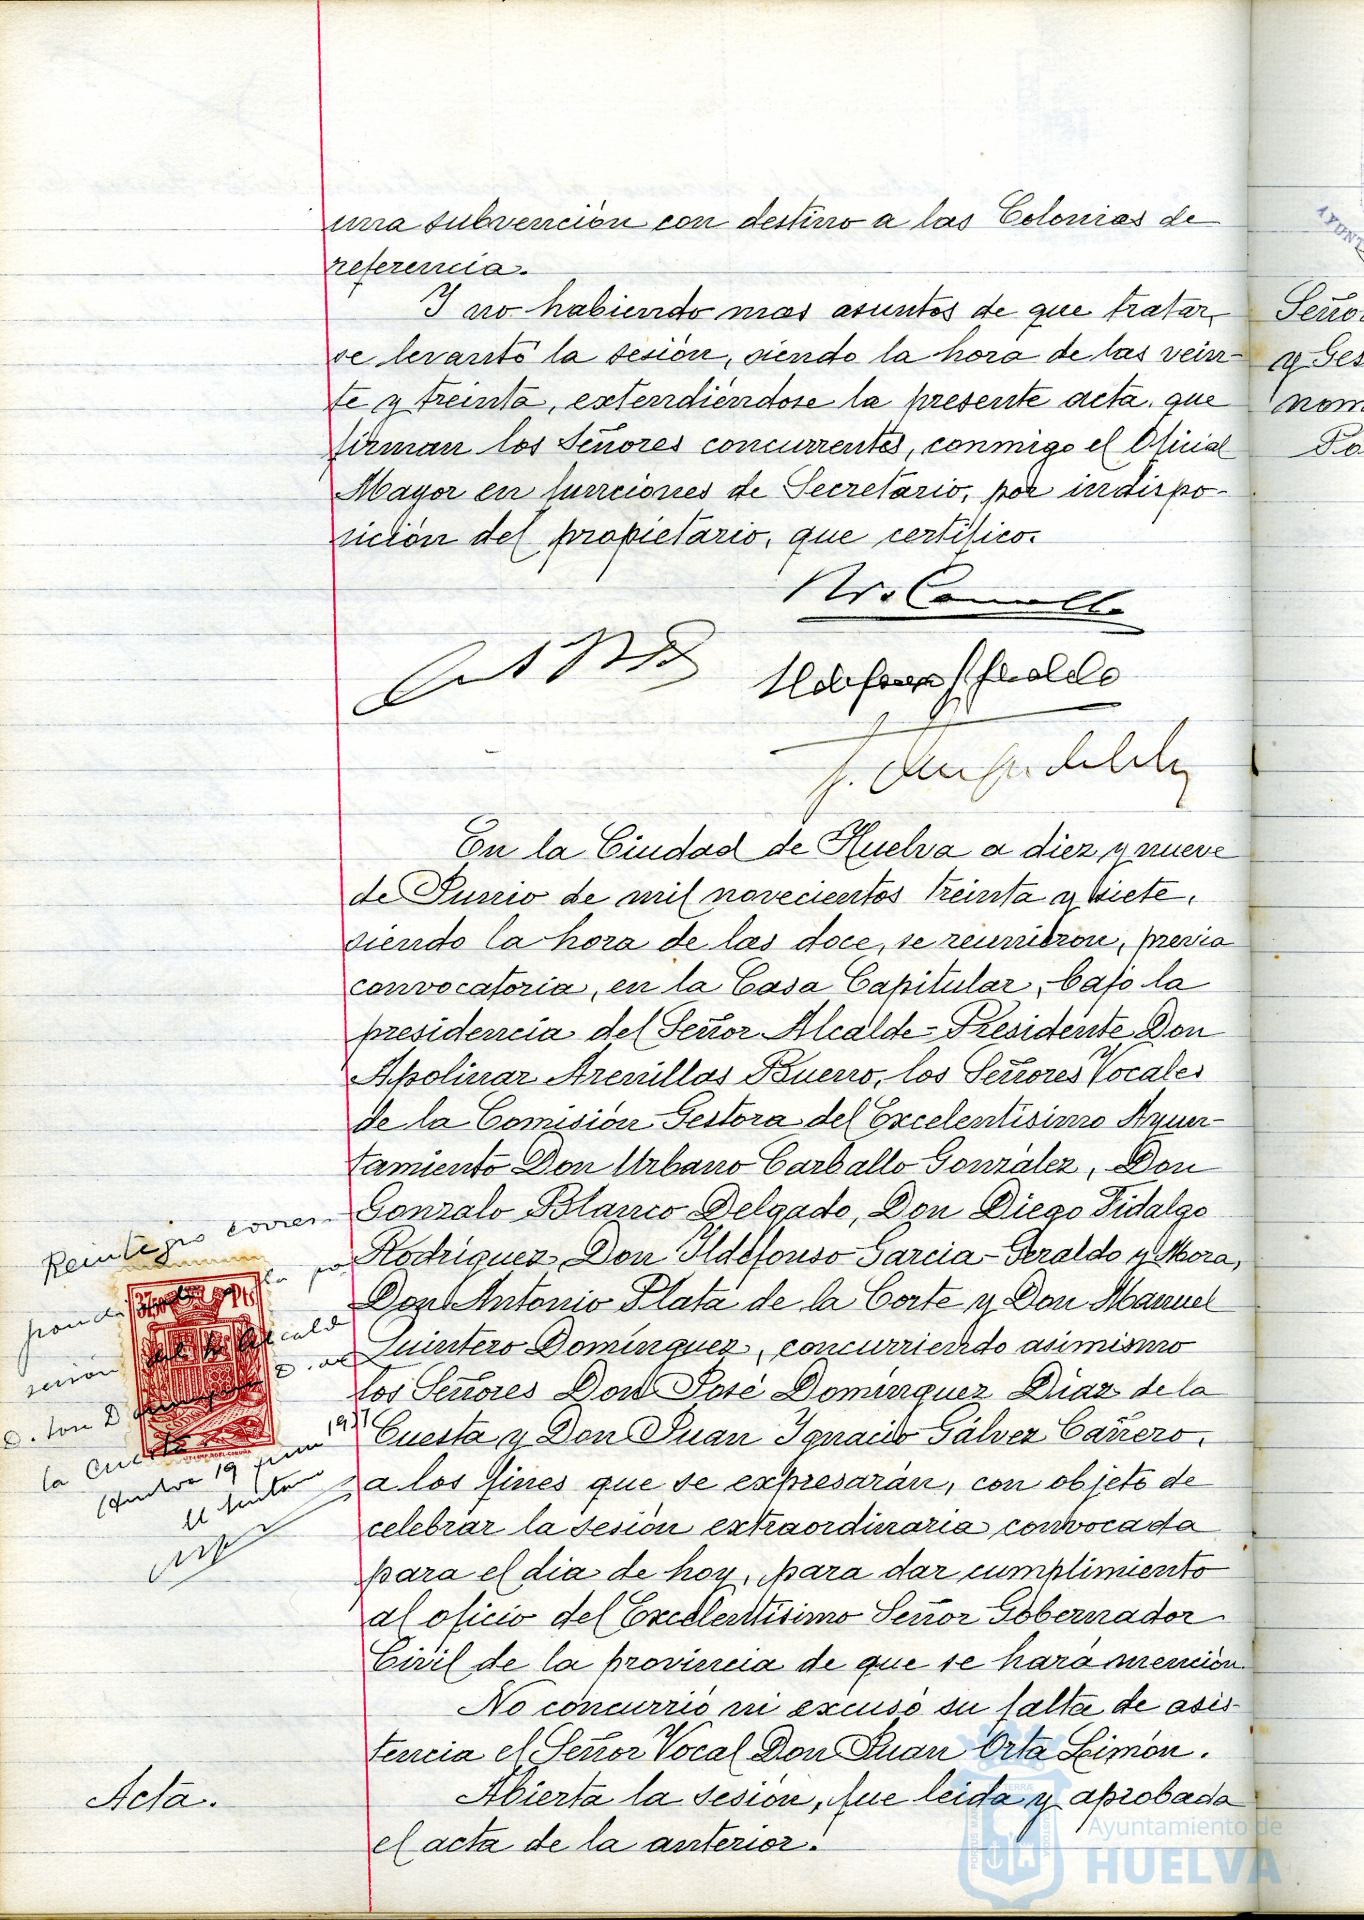 una subvención con destino a las Colonias de
referencia.
Y no habiendo mas asuntos de que tratar,
se levantó la sesión, siendo la hora de las vein-
te y treinta, extendiéndose la presente acta, que
firman los Señores concurrentes, conmigo el Oficial
Mayor en funciones de Secretario, por indispo-
sición del propietario, que certifico.
En la Ciudad de Huelva a diez y nueve
de Junio de mil novecientos treinta y siete,
siendo la hora de las doce, se reunieron, previa
convocatoria, en la Casa Capitular, bajo la
presidencia del Señor Alcalde-Presidente Don
Apolinar Arenillas Bueno, los Señores Vocales
de la Comisión Gestora del Excelentísimo Ayun-
tamiento Don Urbano Carballo González, Don
Gonzalo Blanco Delgado, Don Diego Fidalgo
Rodríguez, Don Ildefonso Garcia-Geraldo y Mora,
Don Antonio Plata de la Corte y Don Manuel
Quintero Domínguez, concurriendo asimismo
los Señores Don José Domínguez Diaz de la
Cuesta y Don Juan Ignacio Gálvez Cañero,
a los fines que se expresarán, con objeto de
celebrar la sesión extraordinaria convocada
para el dia de hoy, para dar cumplimiento
al oficio del Excelentísimo Señor Gobernador
Civil de la provincia de que se hará mención.
No concurrió ni excusó su falta de asis-
tencia el Señor Vocal Don Juan Orta Limón.
Abierta la sesión, fue leida y aprobada
el acta de la anterior.
Reintegro corres-
la po
sesión de la Alcaldia
la Cuesta
Huelva 19 junio 1937
Pts
Acta.
Señor
y Ges
nom
AYUNT
Ayuntamiento de
HUELVA